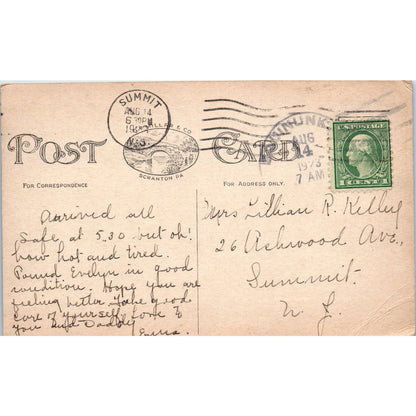 SUMMIT
AUG 14
6 PM
192
N.J.
& CO
SCRANTON PA
AUG
14
1923
7 AM
U.S. POSTAGE
1 CENT 1
POST CARD
FOR CORRESPONDENCE
FOR ADDRESS ONLY.
Arrived all
safe at 5,30 but oh!
how hot and tired.
Found Evelyn in good
condition. Hope you are
feeling better, Take good
care of yourself, Love to
you and Daddy
Emma.
Mrs Lillian R. Kelley
26 Ashwood Ave,
Summit.
N. J.